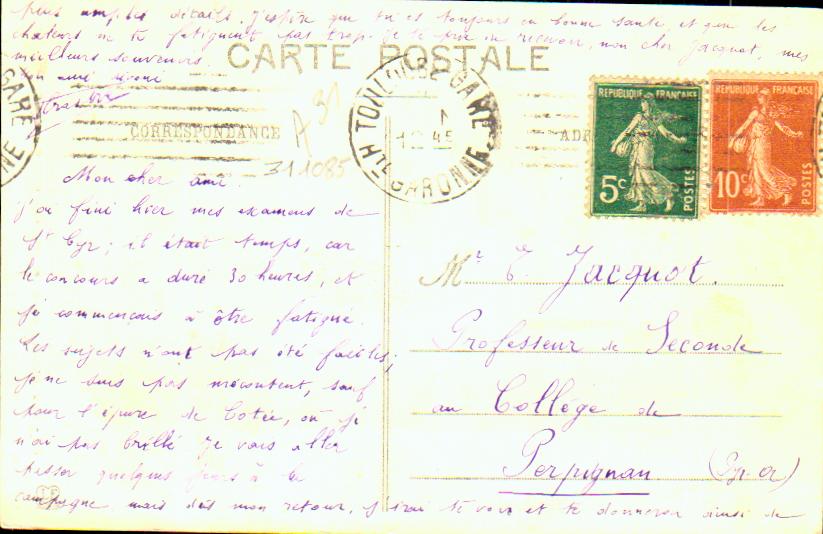 plus amples détails. J'espère que tu es toujours en bonne santé, et que les
chaleurs ne te fatiguent pas trop. Je te prie de recevoir, mon cher Jacquot, mes
meilleurs souvenirs.
Ton ami dévoué
CARTE POSTALE
CORRESPONDANCE
A 31
311085
TOULOUSE-GARE
1245
Hte GARONNE
GARE
NNE
ADR
REPUBLIQUE FRANÇAISE
5c
POSTES
REPUBLIQUE FRANÇAISE
10c
POSTES
Mon cher ami.
J'ai fini hier mes examens de
St Cyr; il était temps, car
le concours a duré 30 heures, et
je commençais à être fatigué.
Les sujets n'ont pas été faciles;
je ne suis pas mécontent, sauf
pour l'épure de Cotée, où je
n'ai pas brillé. Je vais aller
passer quelques jours à la
campagne, mais dès mon retour, j'irai te voir et te donnerai ainsi de
Mr E. Jacquot.
Professeur de Seconde
au Collège de
Perpignan (Pyr-Or)